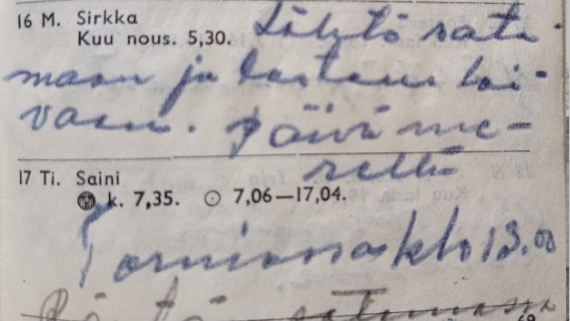 16 M. Sirkka
Kuu nous. 5,30. Lähtö sata-
maan ja lastaus lai-
vaan. Päivä me-
rellä
17 Ti. Saini
k. 7,35. ☉ 7,06—17,04.
Torniossa klo 13.00
satamassa
69